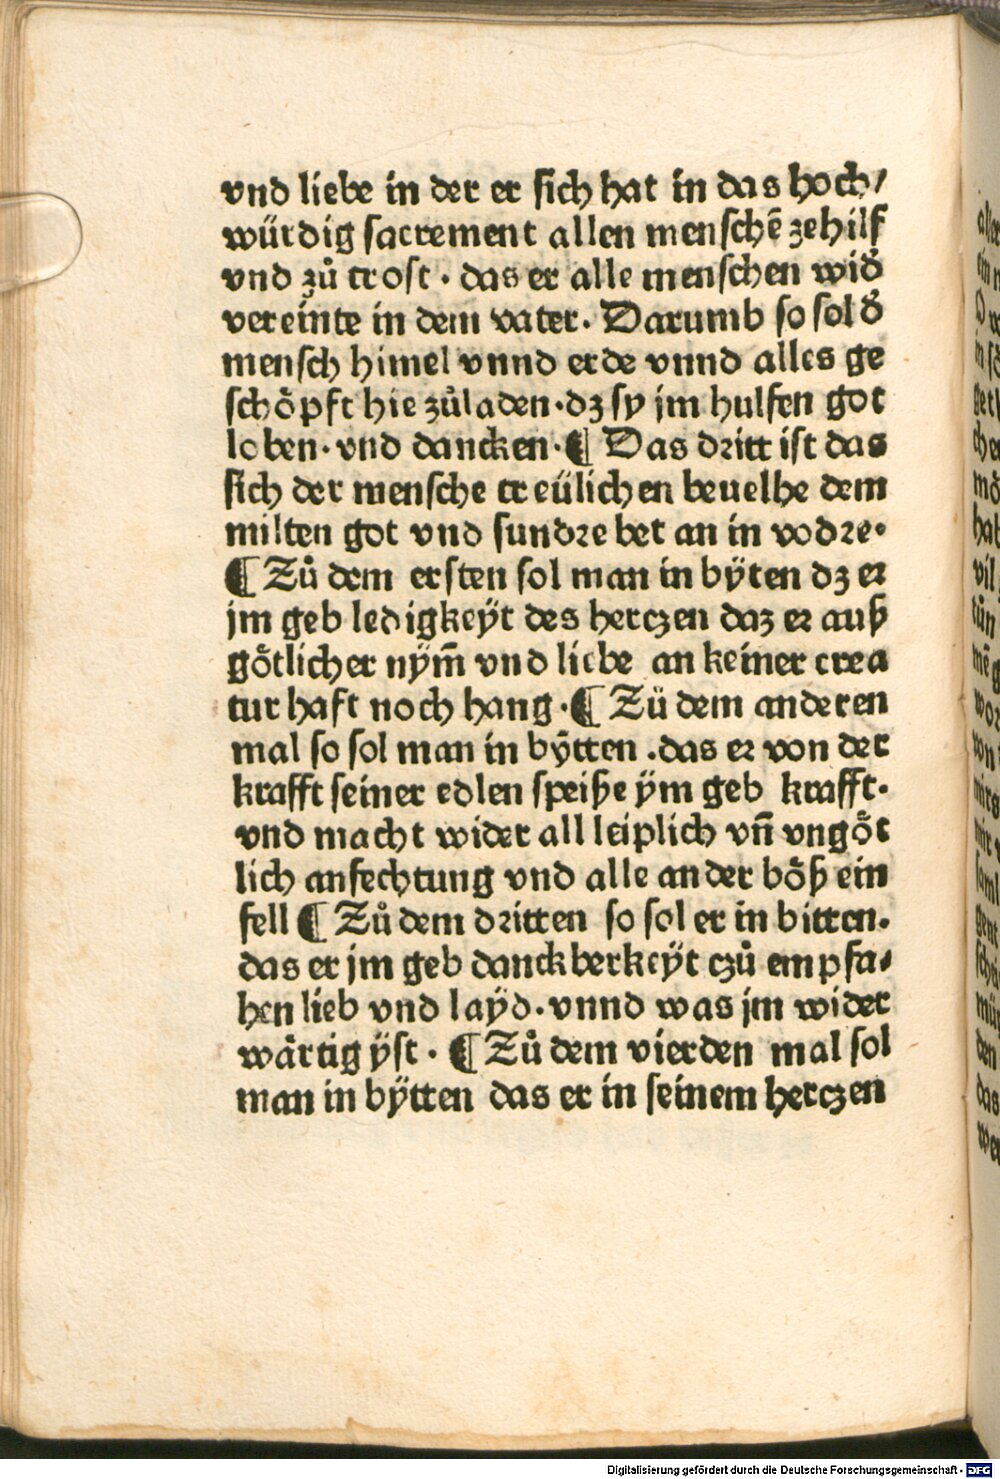 vnd liebe in der er sich hat in das hoch/
würdig sacrement allen menschē zehilf
vnd zů trost · das er alle menschen wid̕
vereinte in dem vater. Darumb so sol d̕
mensch himel vnnd erde vnnd alles ge
schöpft hie zůladen·dz sy jm hulfen got
loben·vnd dancken·¶ Das dritt ist das
sich der mensche treülichen beuelhe dem
milten got vnd sundre bet an in vodre·
¶ Zů dem ersten sol man in bÿten dz er
jm geb ledigkeÿt des herczen daz er auß
götlicher nÿm̄ vnd liebe an keiner crea
tur haft noch hang·¶ Zü dem anderen
mal so sol man in bÿtten .das er von der
krafft seiner edlen speiße ÿm geb krafft·
vnd macht wider all leiplich vn̄ vngöt
lich anfechtung vnd alle ander böß ein
fell ¶ Zů dem dritten so sol er in bitten.
das er jm geb danckberkeÿt czů empfa/
hen lieb vnd laÿd·vnnd was jm wider
wärtig ÿst · ¶ Zů dem vierden mal sol
man in bÿtten das er in seinem herczen
Digitalisierung gefördert durch die Deutsche Forschungsgemeinschaft - DFG